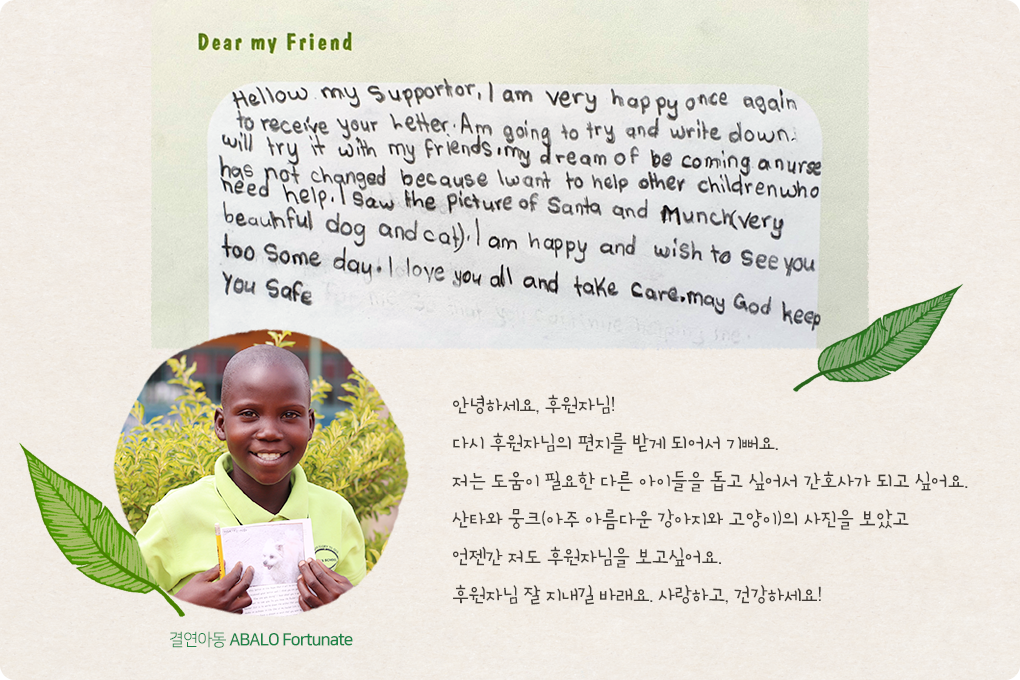 Dear my Friend
Hellow my Supporter, I am very happy once again
to receive your Letter. Am going to try and write down.
will try it with my friends, my dream of be coming a nurse
has not changed because I want to help other children who
need help. I saw the picture of Santa and Munch(very
beautiful dog and cat). I am happy and wish to see you
too some day. I love you all and take care. may God keep
you safe
안녕하세요, 후원자님!
다시 후원자님의 편지를 받게 되어서 기뻐요.
저는 도움이 필요한 다른 아이들을 돕고 싶어서 간호사가 되고 싶어요.
산타와 뭉크(아주 아름다운 강아지와 고양이)의 사진을 보았고
언젠간 저도 후원자님을 보고싶어요.
후원자님 잘 지내길 바래요. 사랑하고, 건강하세요!
결연아동 ABALO Fortunate